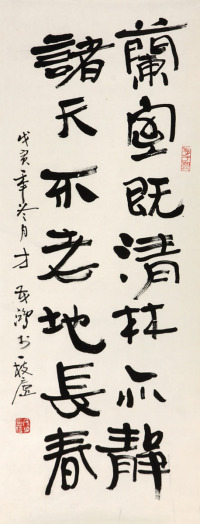 蘭室既清林亦靜
諸天不老地長春
戊寅年冬月